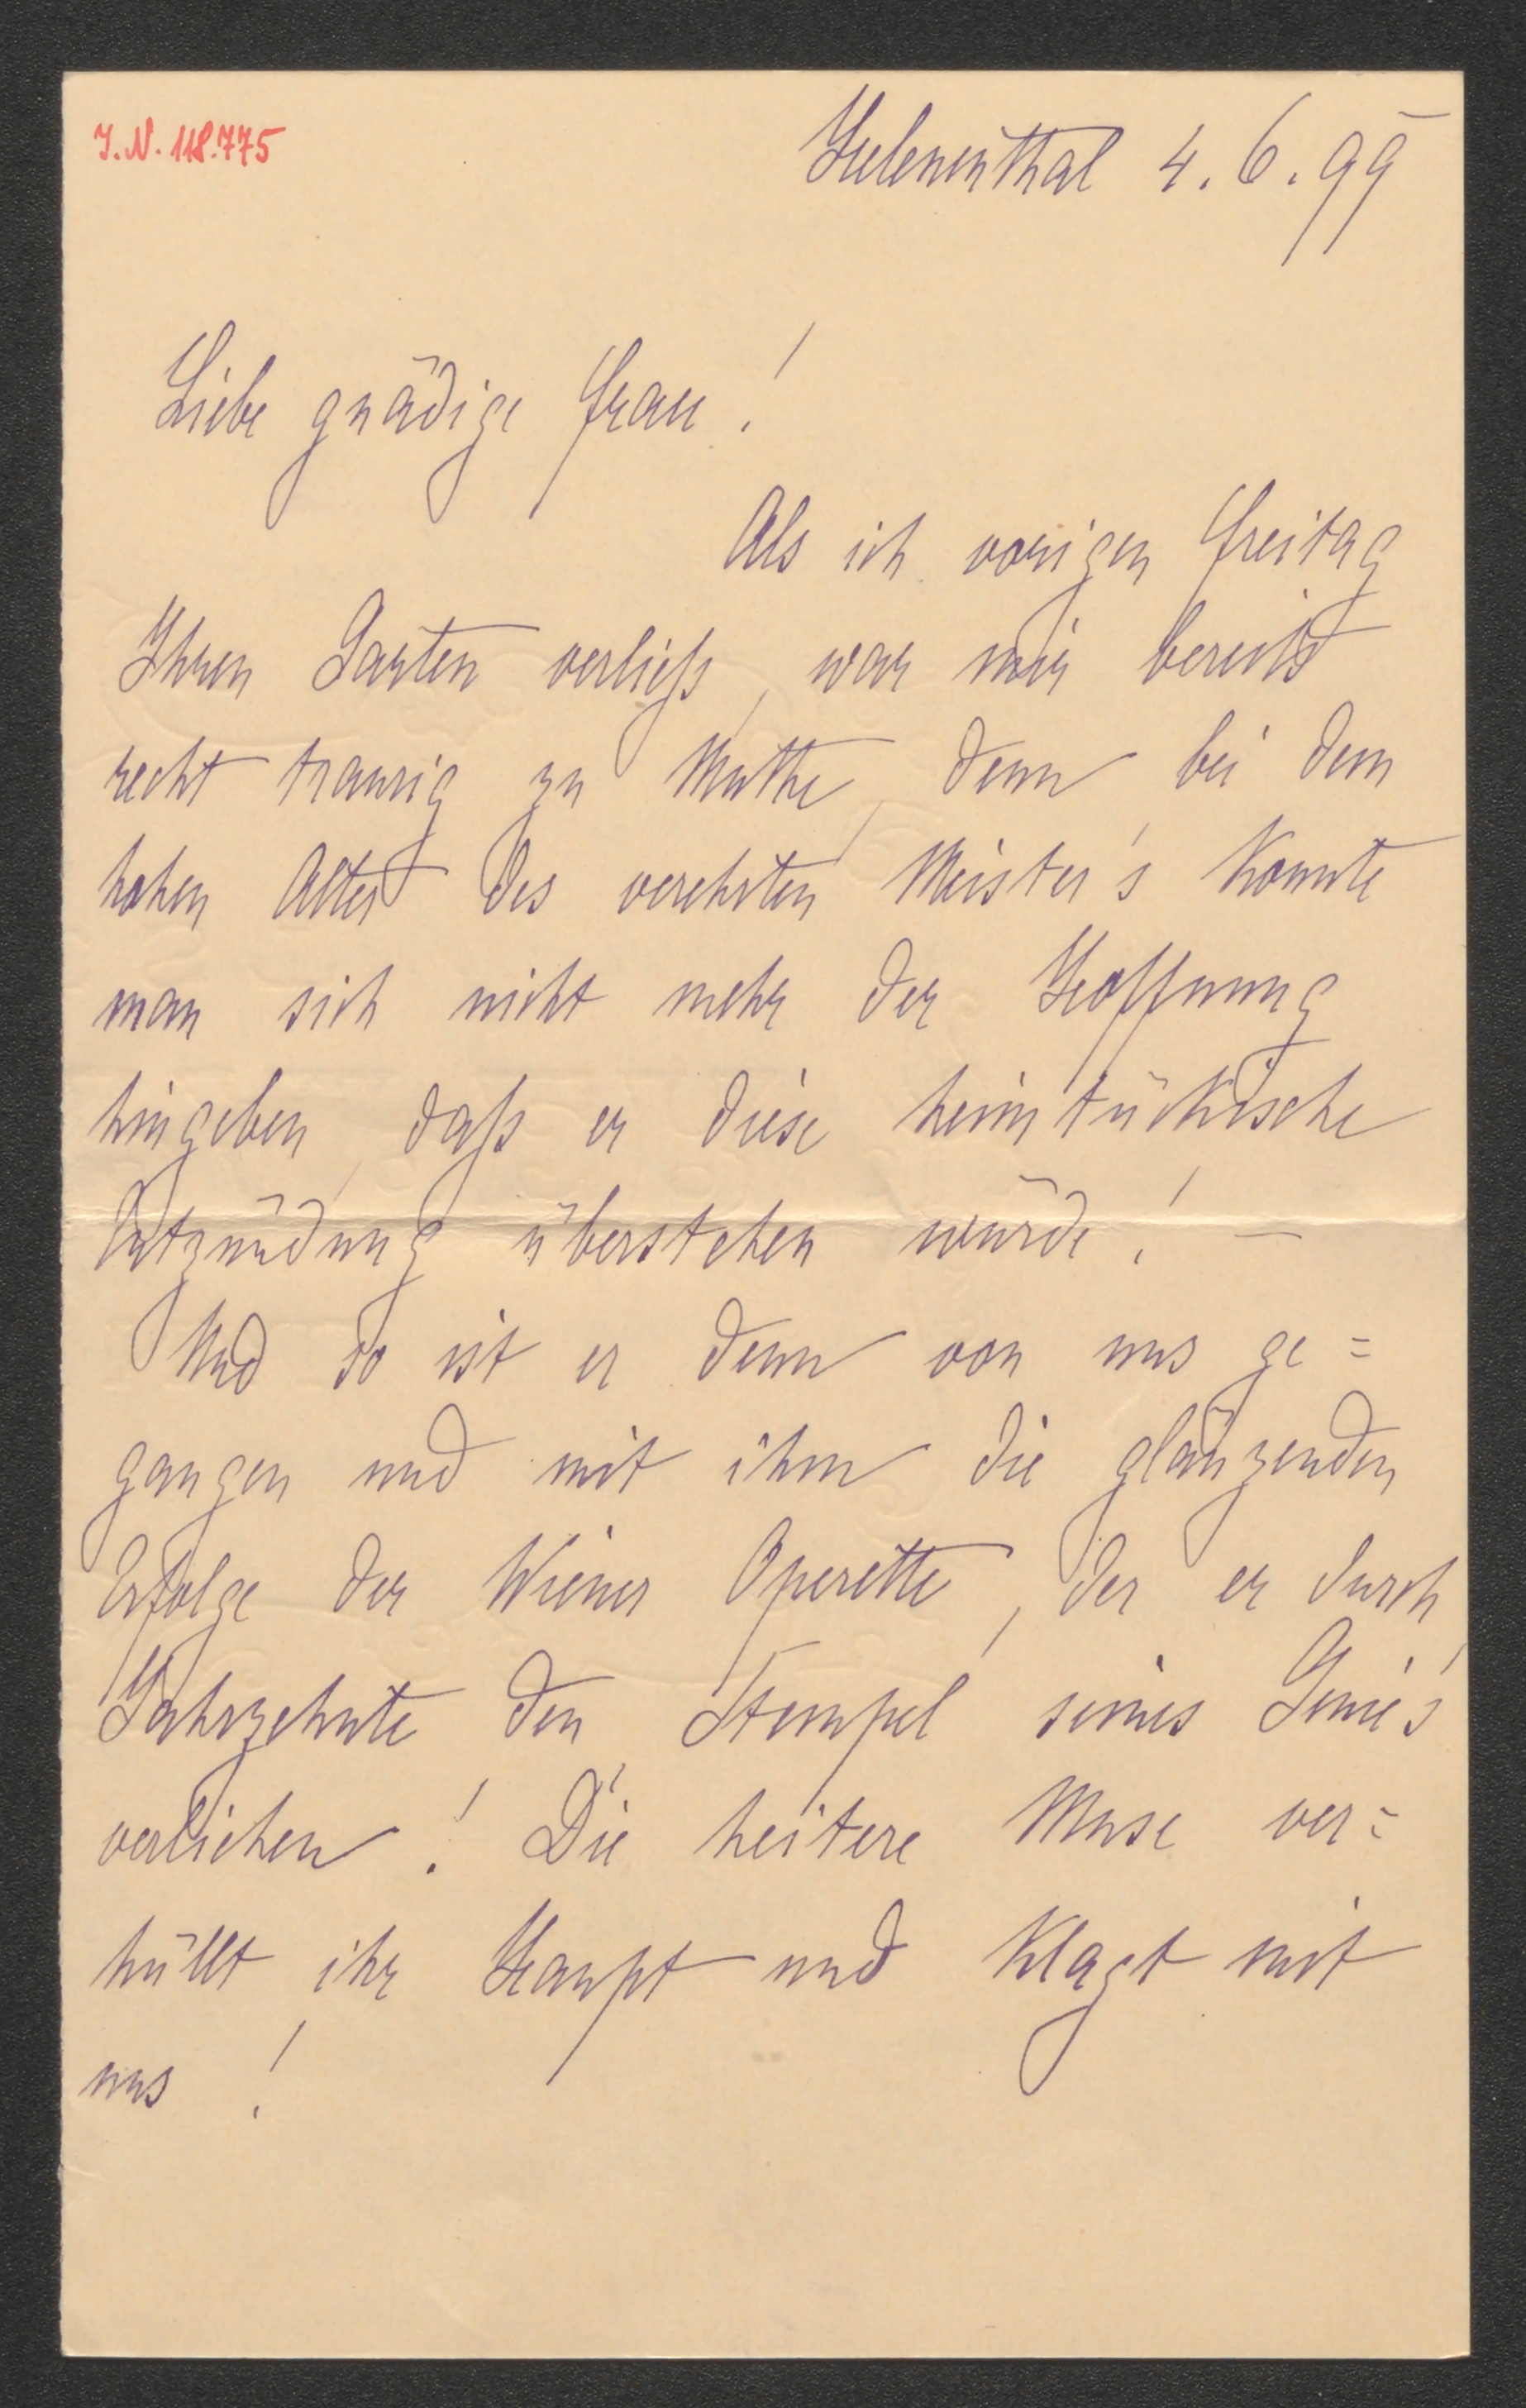 I.N. 118.775
Helenenthal 4. 6. 99
Liebe gnädige Frau!
Als ich vorigen Freitag
Ihren Garten verließ, war mir bereits
recht traurig zu Muthe, denn bei dem
hohen Alter des verehrten Meister's konnte
man sich nicht mehr der Hoffnung
hingeben, daß er diese heimtückische
Entzündung überstehen würde! –
Und so ist er denn von uns ge=
gangen und mit ihm die glänzenden
Erfolge der Wiener Operette, der er durch
Jahrzehnte den Stempel seines Genie's
verliehen! Die heitere Muse ver=
hüllt ihr Haupt und klagt mit
uns!